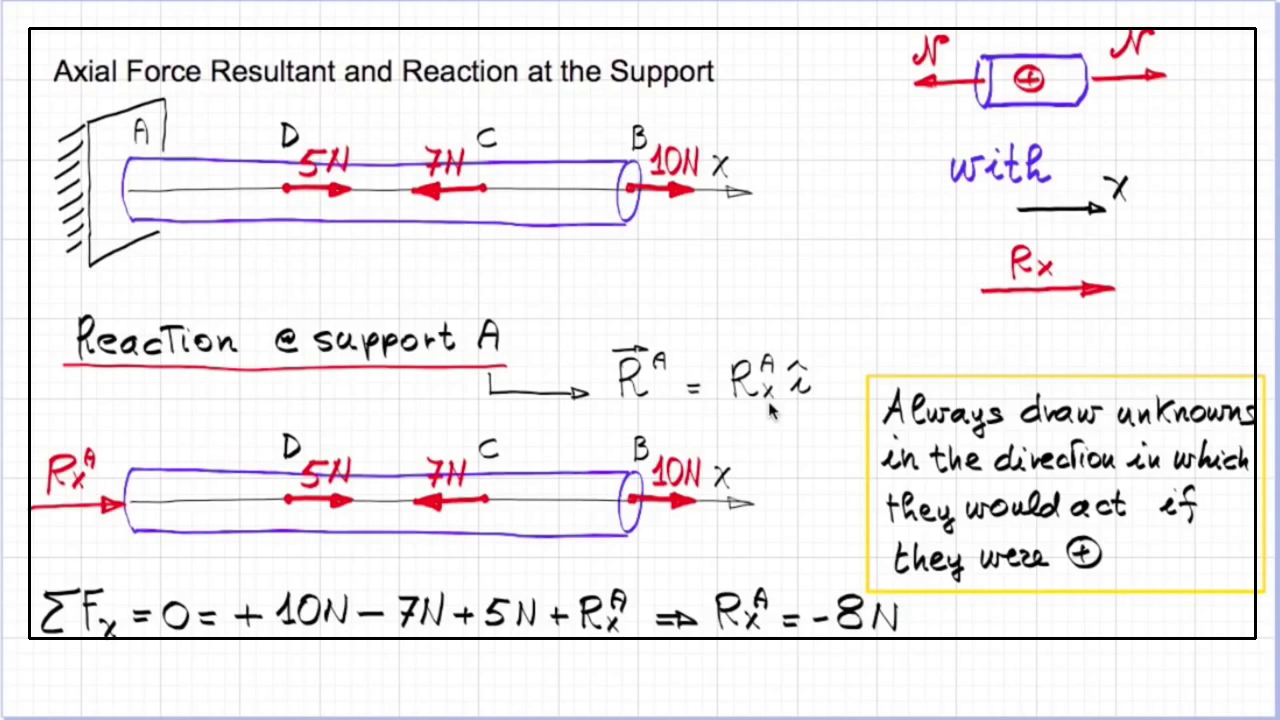 Axial Force Resultant and Reaction at the Support
N
N
+
with
x
Rx
A
D
C
B
5N
7N
10N
x
Reaction @ support A
R^A = Rx^A î
D
C
B
Rx^A
5N
7N
10N
x
Always draw unknowns
in the direction in which
they would act if
they were ⊕
ΣFx = 0 = + 10N − 7N + 5N + Rx^A ⇒ Rx^A = -8N